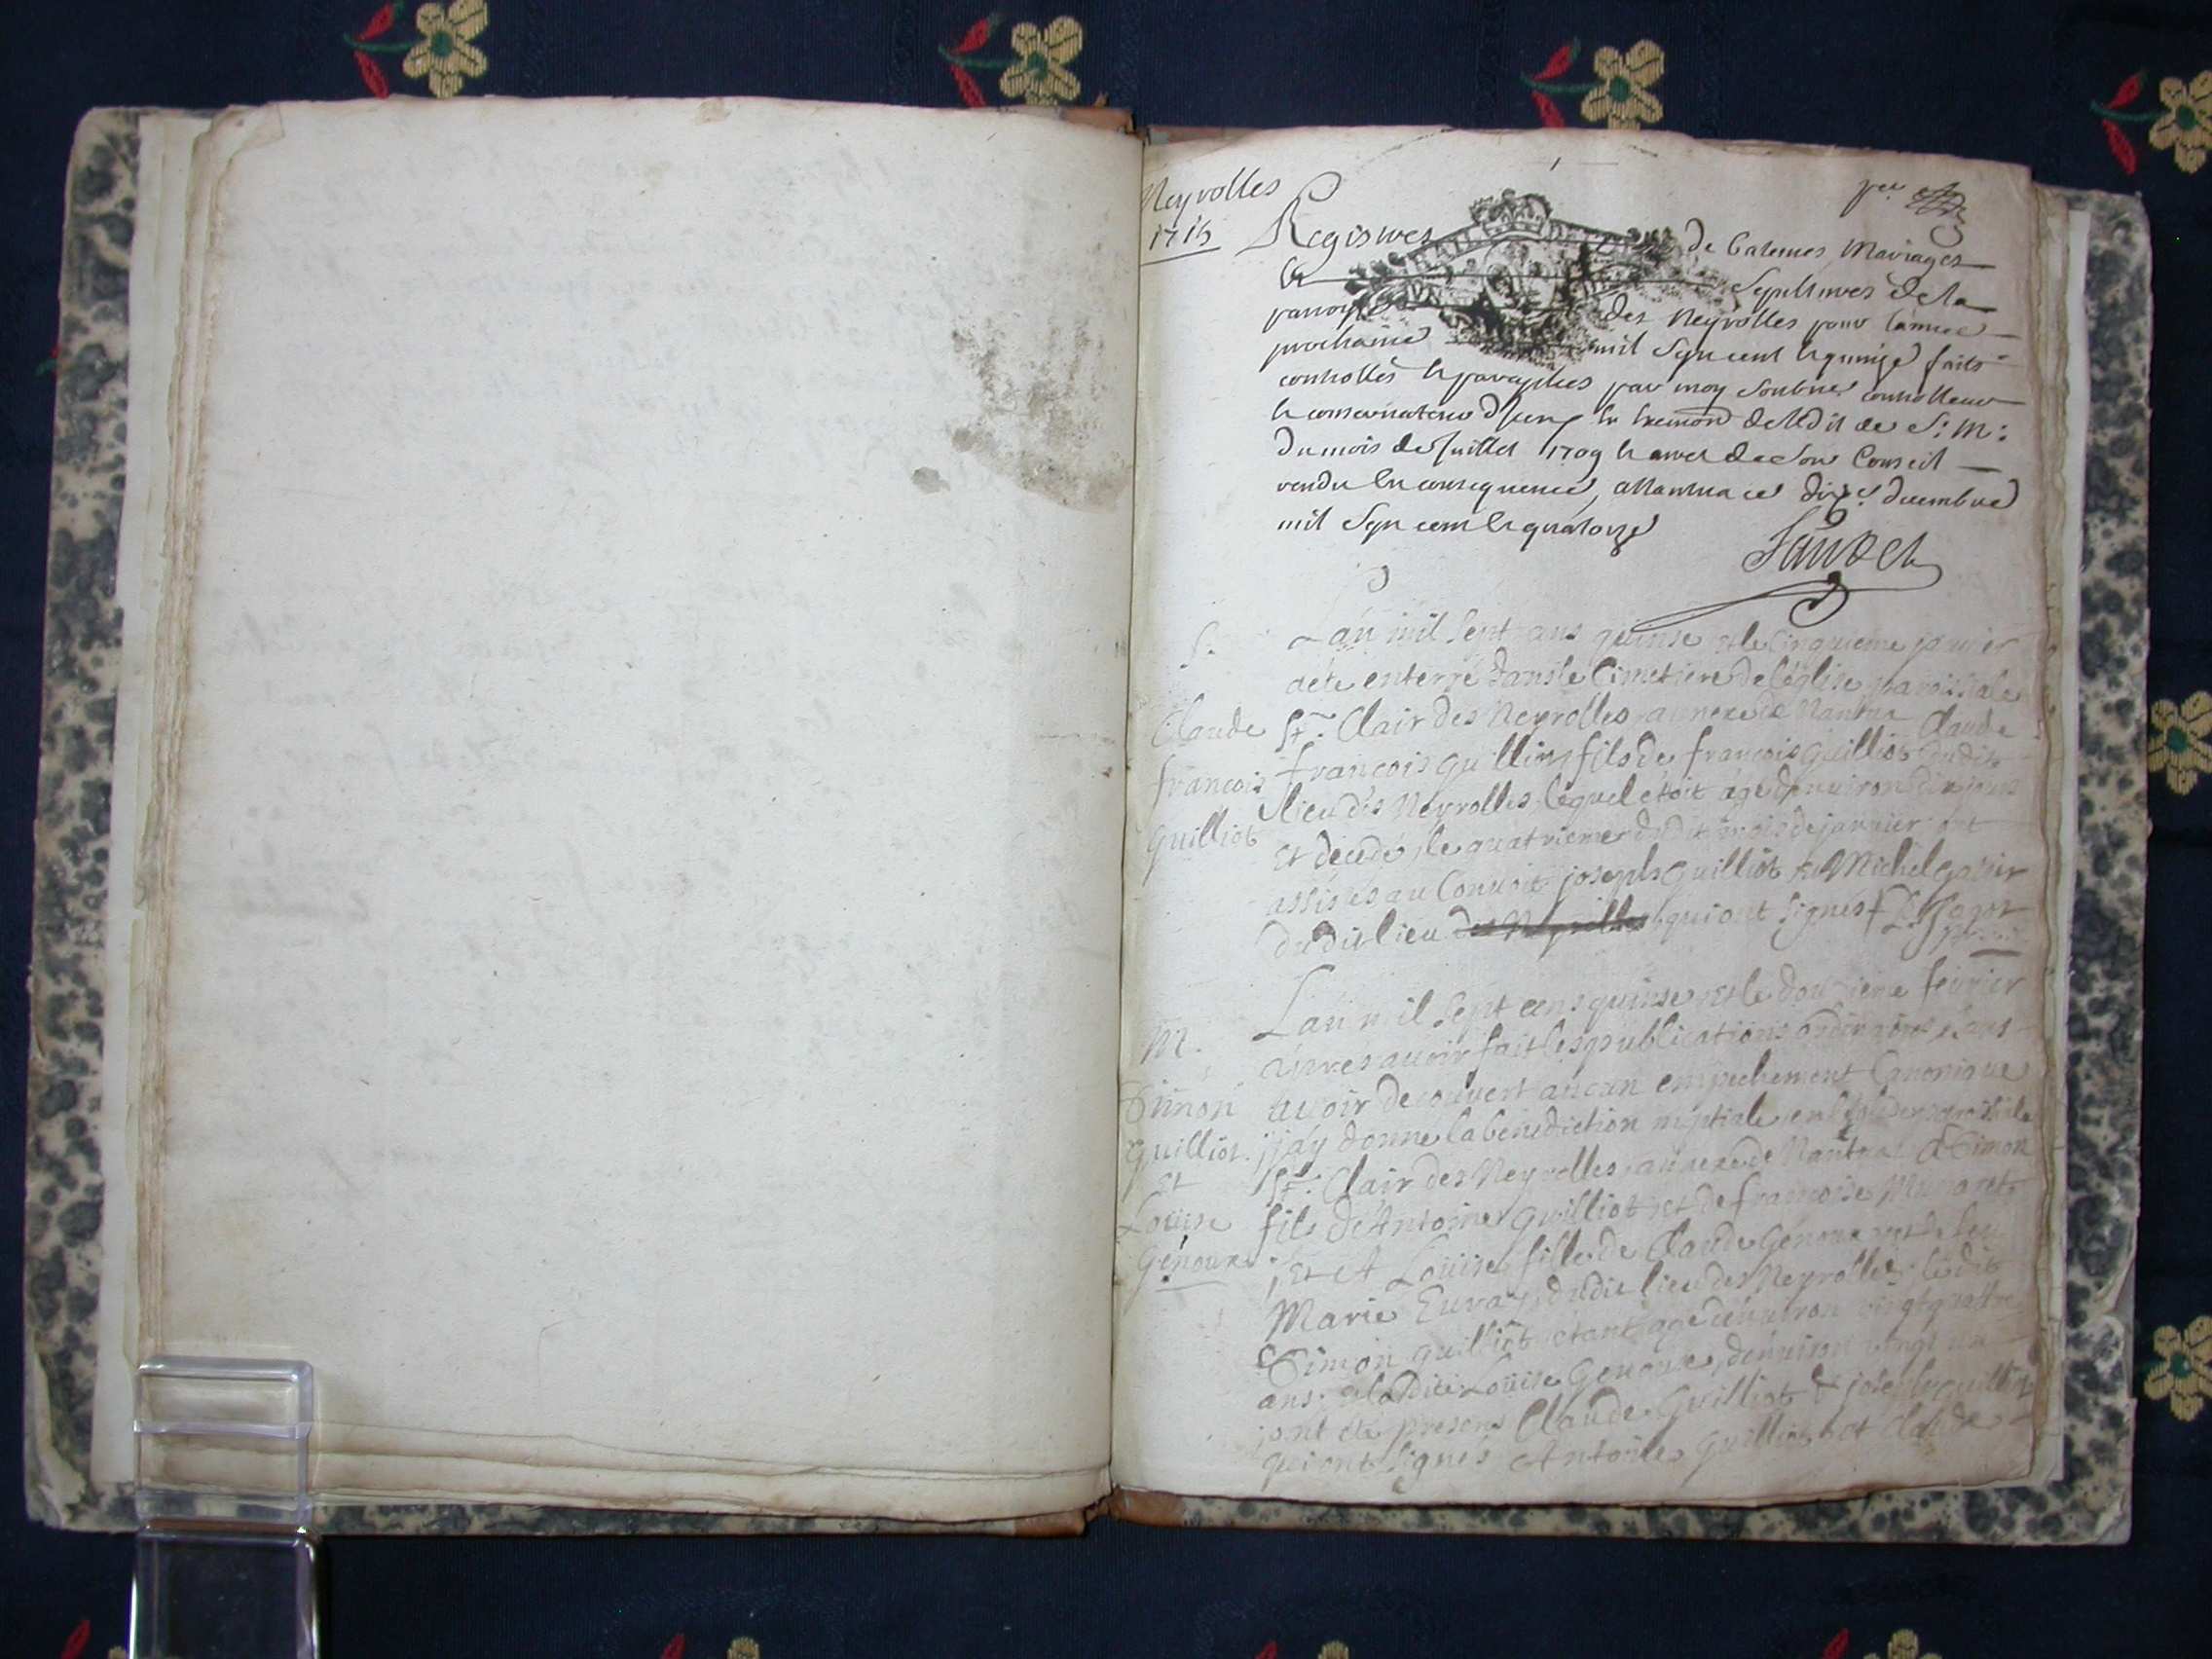 Neyrolles
1715
Registres de batemes Mariages
et Sepultures de la
parroisse des Neyrolles pour l'année
prochaine mil Sept cent et quinze faits
controllés et paraphés par moy Soubne controlleur
et conservateur en de lEdit de S: M:
du mois de Juillet 1709 et arret de Son Conseil
rendu En consequence, a Nantua ce dixe decembre
mil Sept cent et quatorze
S.
Claude
francois
Guilliot
L'an mil sept cens quinse et le Cinquieme janvier
a été enterré dans le Cimetiere de l'église paroissiale
St. Clair des Neyrolles annexe de Nantua Claude
francois guilliot fils de francois guilliot dudit
lieu des Neyrolles lequel étoit agé d'environ dix jours
et decedé le quatrieme dudit mois de janvier ont
assistés au Convoit joseph guilliot et Michel
dudit lieu des Neyrolles qui ont signés
M.
Simon
guilliot
et
Louise
Genoux
L'an mil sept cens quinse et le douzieme fevrier
apres avoir fait les publications ordinaires sans
avoir decouvert aucun empechement Canonique
j'ay donné la bénediction nuptiale en l'église paroissiale
St. Clair des Neyrolles annexe de Nantua A Simon
fils de Antoine guilliot et de francoise
Et A Louise fille de Claude Genoux et de feu
Marie dudit lieu des Neyrolles ledit
Simon guilliot etant agé d'environ vingt quattre
ans et la dite Louise Genoux d'environ vingt un
ont été presens Claude Guilliot et joseph guilliot
qui ont signés Antoine guilliot et Claude